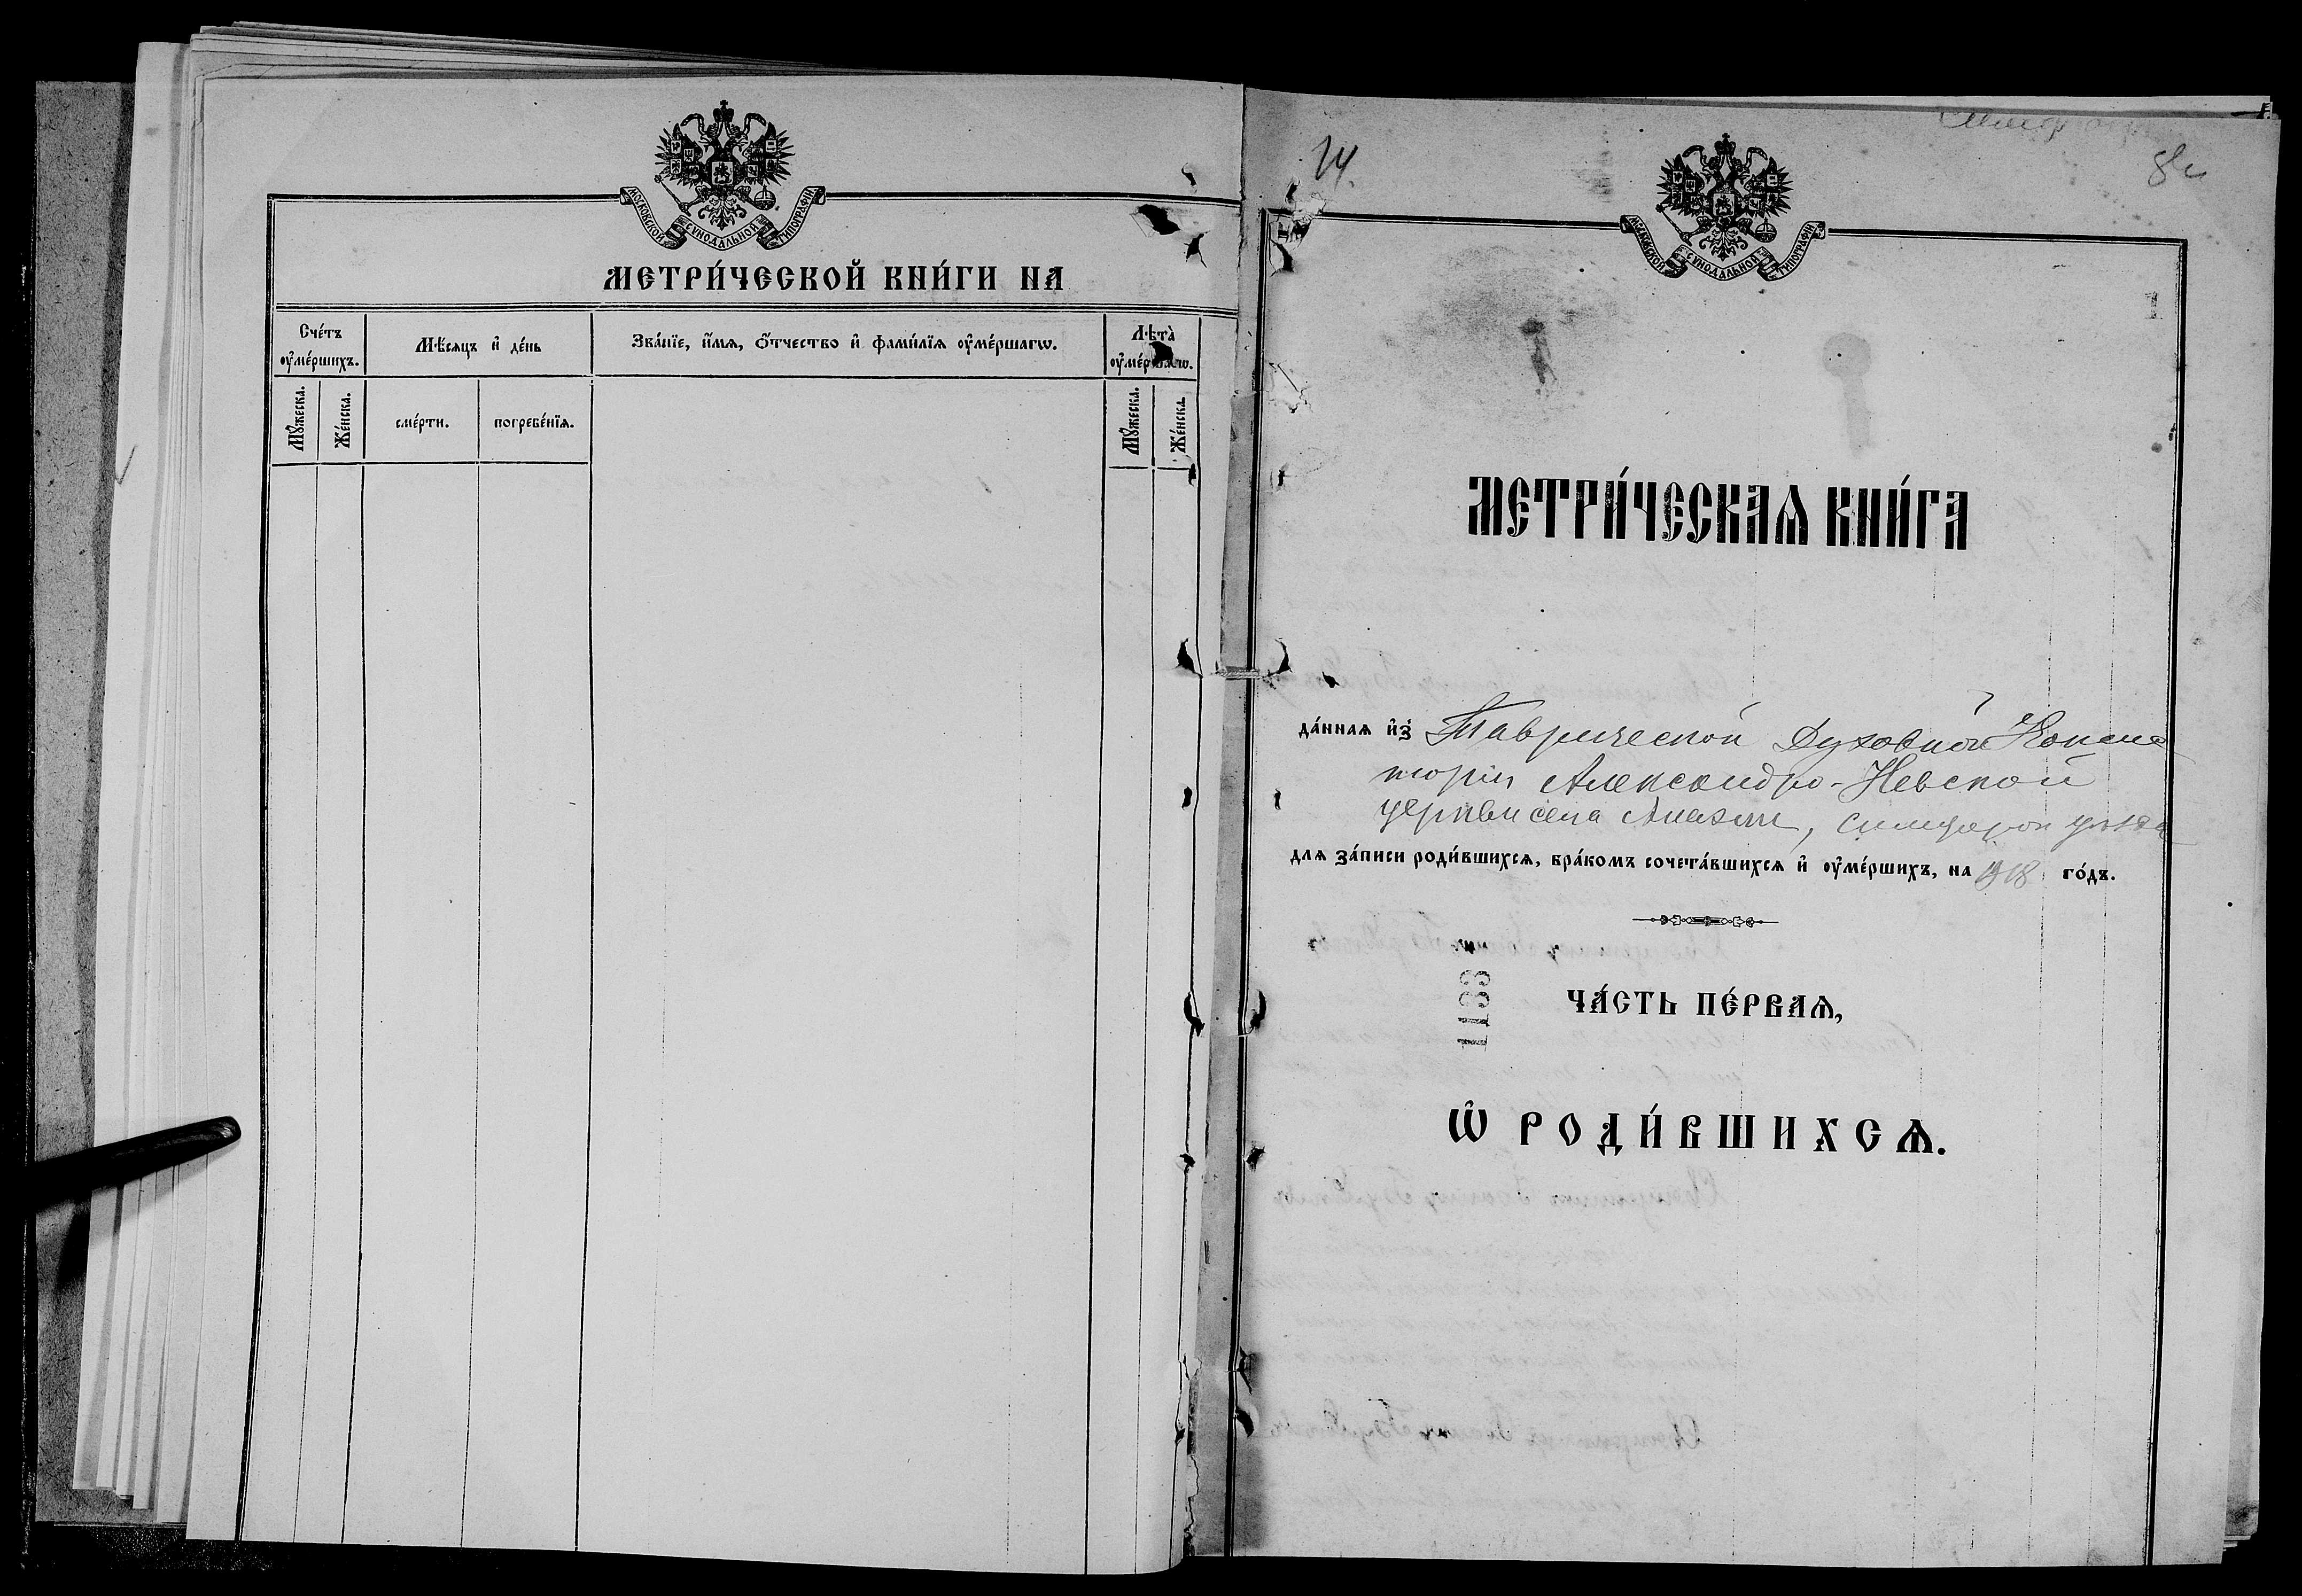 МОСКОВСКОЙ СѴНОДАЛЬНОЙ ТИПОГРАФІИ
МЕТРИ́ЧЕСКОЙ КНИ́ГИ НА
Сче́тъ оу҆ме́ршихъ.
Мѣ́сяцъ и҆ де́нь
Зва́нїе, и҆́мѧ, ѻ҆́тчество и҆ фами́лїѧ оу҆ме́ршагѡ.
Лѣ́та̀ оу҆ме́ршагѡ.
Мꙋ́жеска.
Же́нска.
сме́рти.
погребе́нїѧ.
Мꙋ́жеска.
Же́нска.
14.
МОСКОВСКОЙ СѴНОДАЛЬНОЙ ТИПОГРАФІИ
1
МЕТРИ́ЧЕСКАѦ КНИ́ГА
да́ннаѧ и҆з̾ Таврической Духовной Консис
торіи Александро-Невской
церкви села
длѧ за́писи роди́вшихсѧ, бра́комъ сочета́вшихсѧ и҆ оу҆ме́ршихъ, на 1918 го́дъ.
1133
ЧА́СТЬ ПЕ́РВАѦ,
Ѽ РОДИ́ВШИХСѦ.